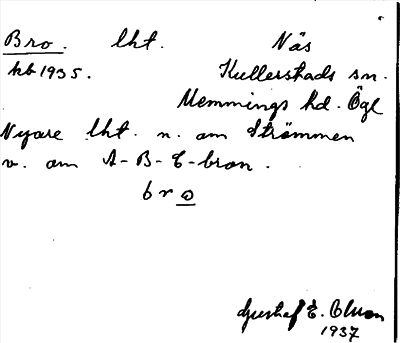 Bro. lht. Näs
kb 1935. Kullerstads sn.
Memmings hd. Ögl
Nyare lht. n. om Strömmen
v. om A-B-C-bron.
bro
Gustaf E. Olson
1937